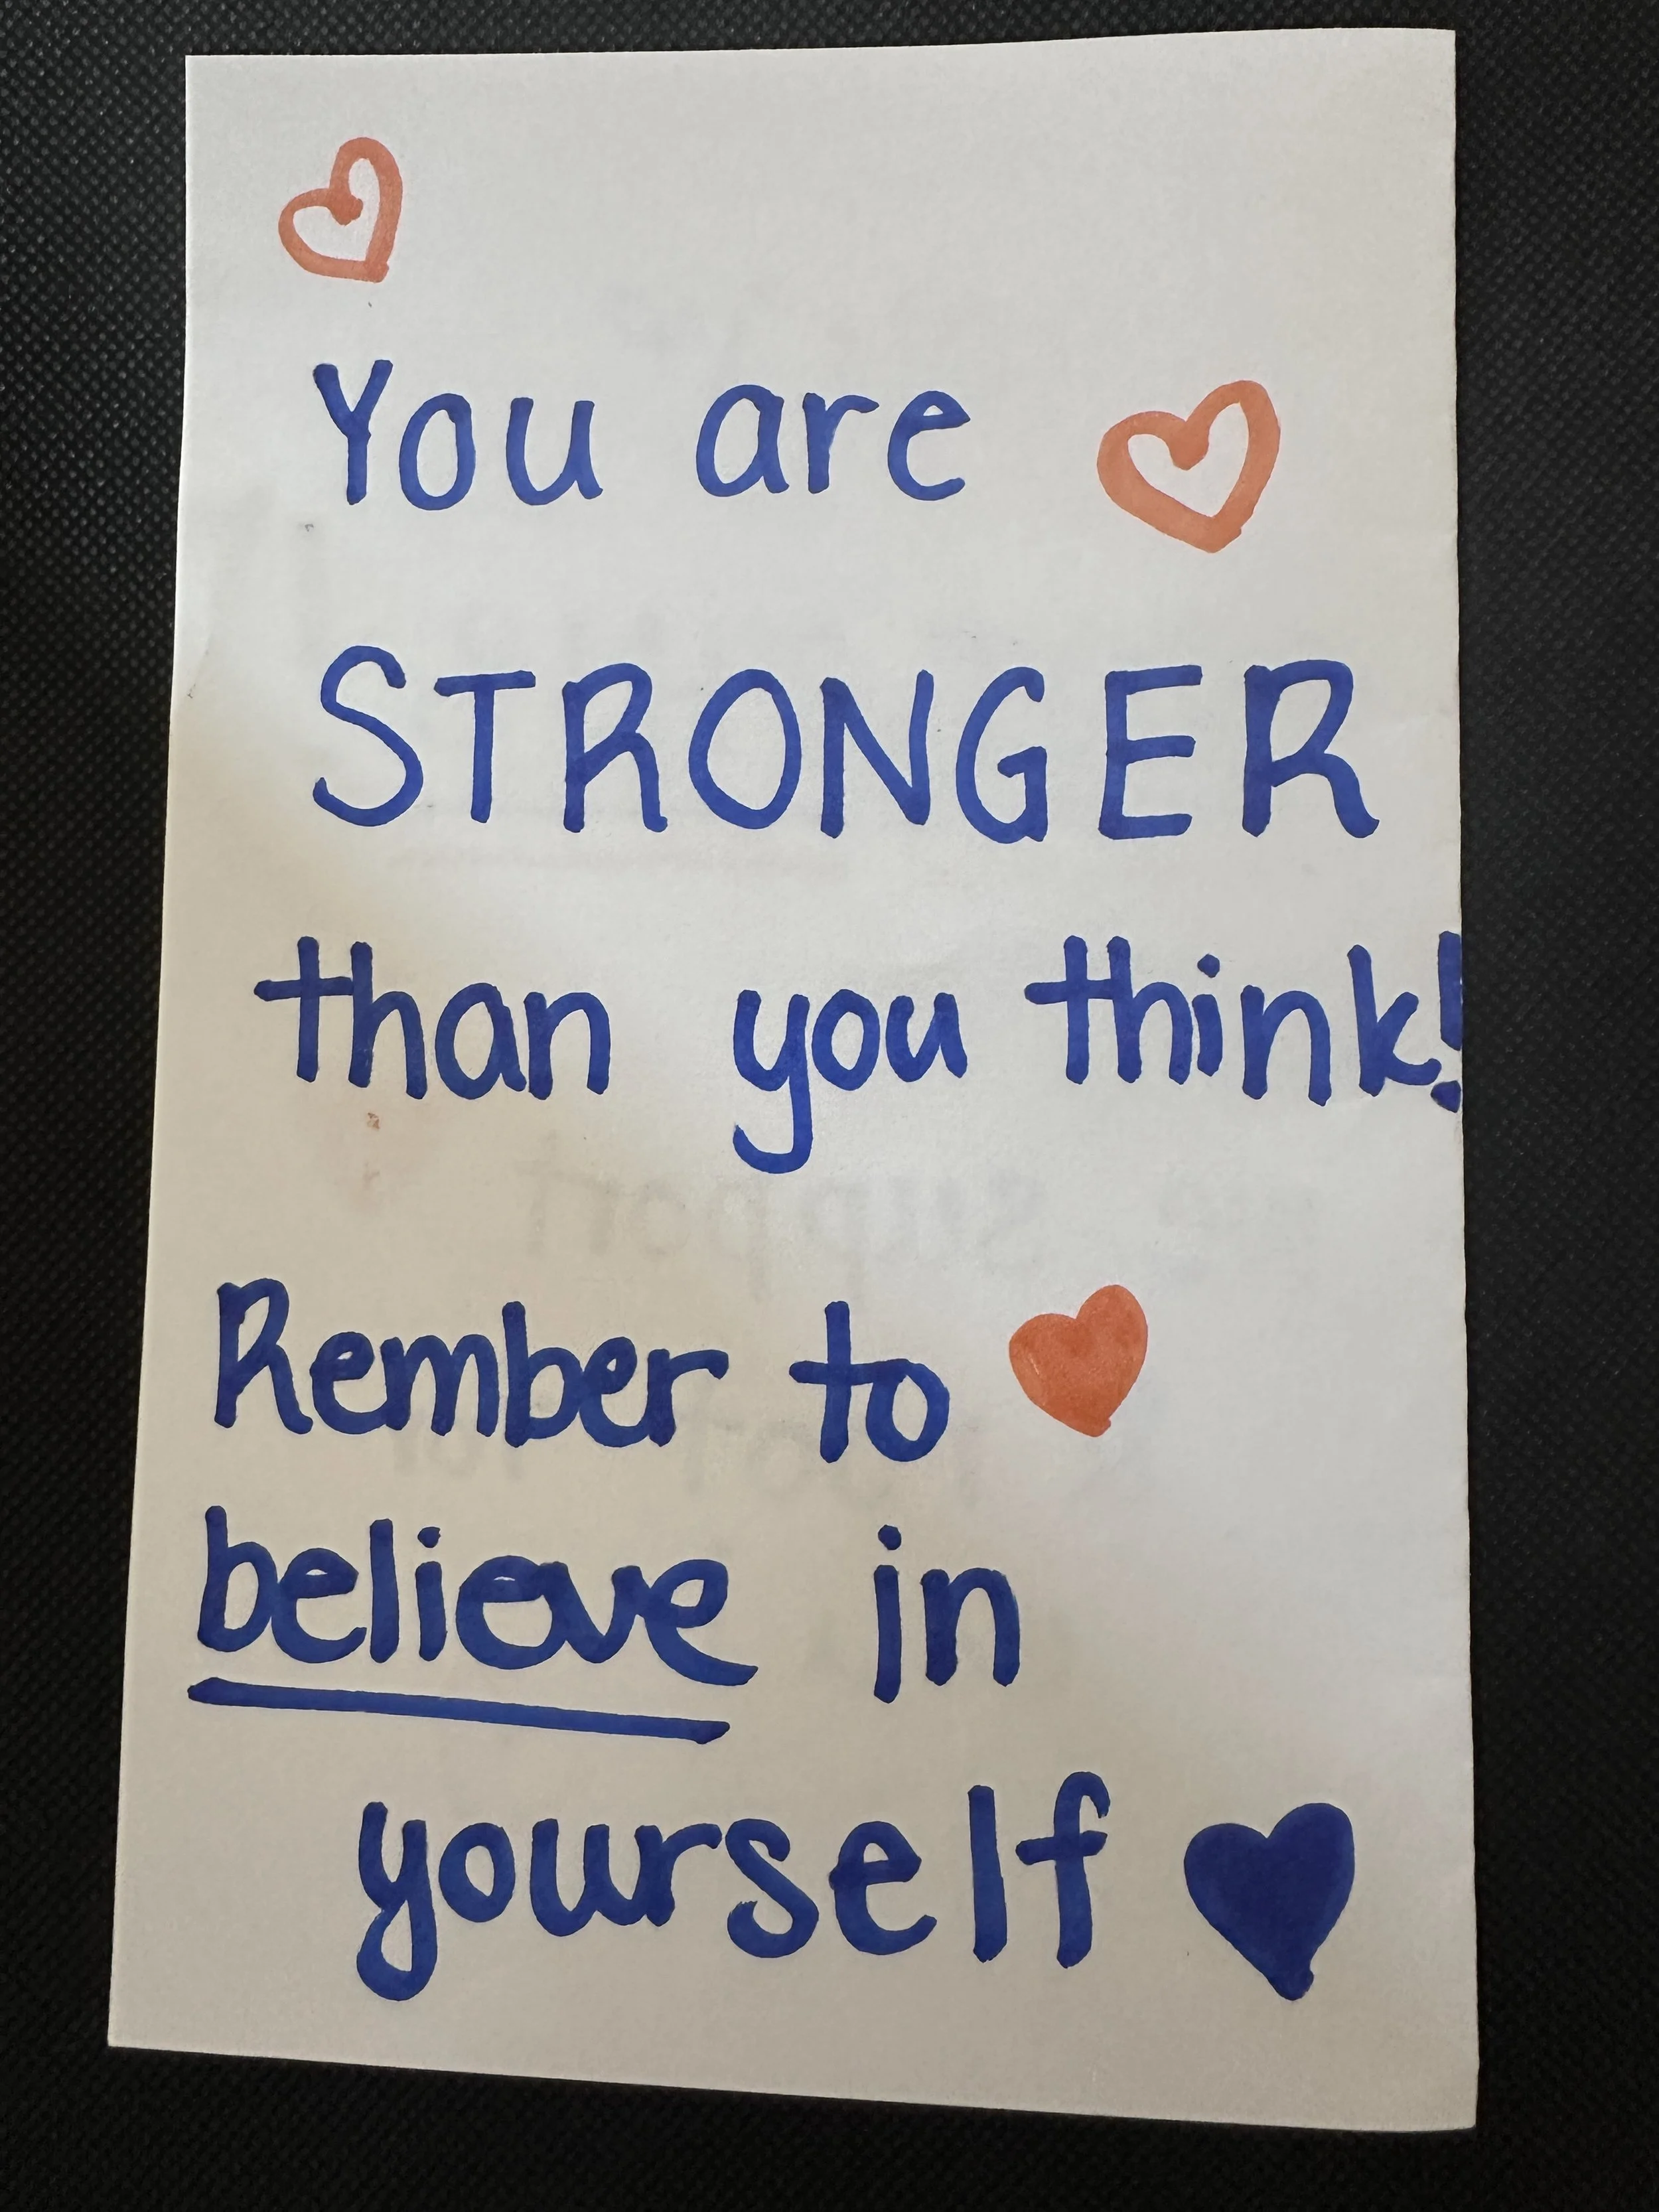 You are
STRONGER
than you think!
Rember to
believe in
yourself